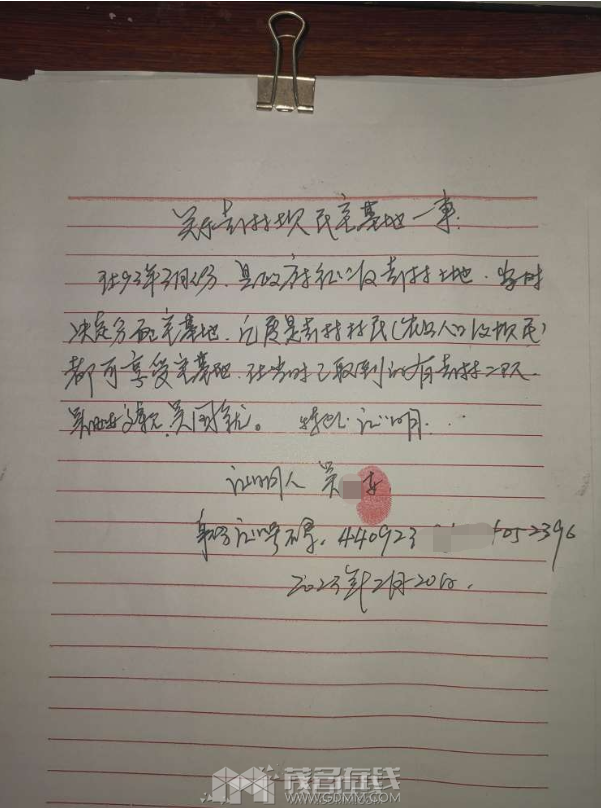 关于村坝民宅基地一事.
在93年3月份.县政府征收村土地.当时
决定分配宅基地.凡是村村民(农业人口及坝民)
都可享受宅基地.在当时已取到的有村二队
吴 吴国龙。特此证明.
证明人 吴
身份证号码.440923 052396
2023年2月20日.
茂名在线
WWW.GDMM.COM